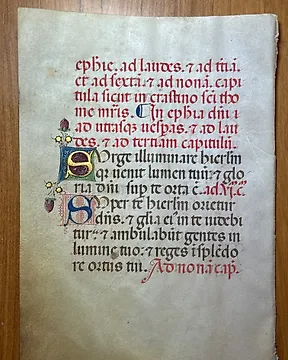 ephie. ad laudes. & ad t̄ciā.
et ad sextā. & ad nonā. capi
tula sicut in crastino sc̄i tho
me mr̄is. In eph̄ia dn̄i i
ad utrasq; uesp̄as. & ad lau
des. & ad tertiam capitulū.
Surge illuminare hierl̄m
q̄r uenit lumen tuū: & glo
ria dn̄i sup te orta ē. ad
Super te hierl̄m orietur
dn̄s. & gl̄ia ei' in te uidebi
tur: & ambulabūt gentes in
lumine tuo: & reges i splēdo
re ortus tui. Ad nonā cap̄.